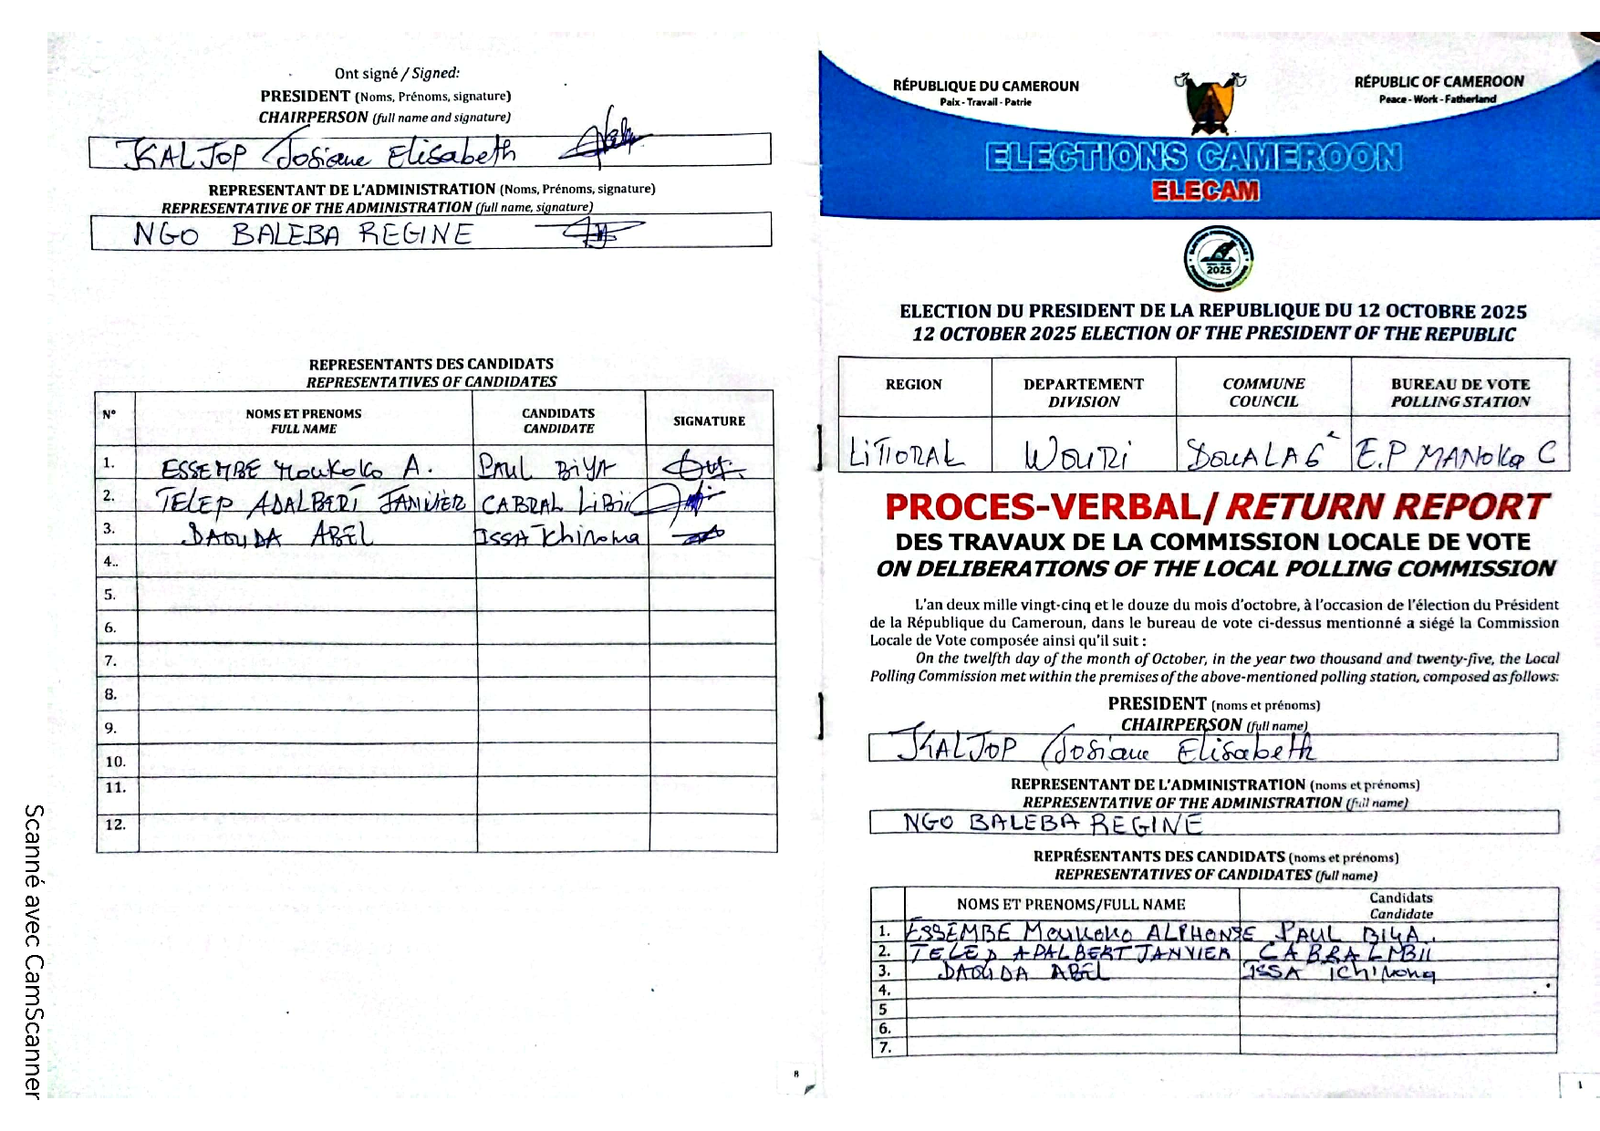 Ont signé / Signed:
PRESIDENT (Noms, Prénoms, signature)
CHAIRPERSON (full name and signature)
Josiane Elisabeth
REPRESENTANT DE L'ADMINISTRATION (Noms, Prénoms, signature)
REPRESENTATIVE OF THE ADMINISTRATION (full name, signature)
NGO BALEBA REGINE
REPRESENTANTS DES CANDIDATS
REPRESENTATIVES OF CANDIDATES
N° NOMS ET PRENOMS CANDIDATS SIGNATURE
FULL NAME CANDIDATE
1. ESSEMBE Moukoko A. PAUL BIYA
2. TELEP ADALBERT JANVIER CABRAL LiBii
3. DAOUDA ABEL ISSA Tchiroma
4..
5.
6.
7.
8.
9.
10.
11.
12.
8
Scanné avec CamScanner
RÉPUBLIQUE DU CAMEROUN
Paix - Travail - Patrie
RÉPUBLIC OF CAMEROON
Peace - Work - Fatherland
ELECTIONS CAMEROON
ELECAM
2025
ELECTION DU PRESIDENT DE LA REPUBLIQUE DU 12 OCTOBRE 2025
12 OCTOBER 2025 ELECTION OF THE PRESIDENT OF THE REPUBLIC
REGION DEPARTEMENT COMMUNE BUREAU DE VOTE
DIVISION COUNCIL POLLING STATION
LiTTORAL WOURi DOUALA 6e E.P MANOKA C
PROCES-VERBAL/ RETURN REPORT
DES TRAVAUX DE LA COMMISSION LOCALE DE VOTE
ON DELIBERATIONS OF THE LOCAL POLLING COMMISSION
L'an deux mille vingt-cinq et le douze du mois d'octobre, à l'occasion de l'élection du Président
de la République du Cameroun, dans le bureau de vote ci-dessus mentionné a siégé la Commission
Locale de Vote composée ainsi qu'il suit :
On the twelfth day of the month of October, in the year two thousand and twenty-five, the Local
Polling Commission met within the premises of the above-mentioned polling station, composed as follows:
PRESIDENT (noms et prénoms)
CHAIRPERSON (full name)
Josiane Elisabeth
REPRESENTANT DE L'ADMINISTRATION (noms et prénoms)
REPRESENTATIVE OF THE ADMINISTRATION (full name)
NGO BALEBA REGINE
REPRÉSENTANTS DES CANDIDATS (noms et prénoms)
REPRESENTATIVES OF CANDIDATES (full name)
NOMS ET PRENOMS/FULL NAME Candidats
Candidate
1. ESSEMBE Moukoko ALPHONSE PAUL BIYA.
2. TELEP ADALBERT JANVIER CABRAL LIBII
3. DAOUDA ABEL ISSA Tchiroma
4.
5
6.
7.
1